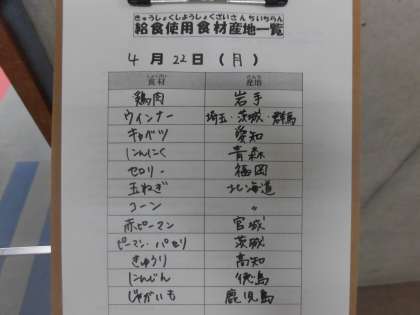 きゅうしょくしようしょくざいさんちいちらん
給食使用食材産地一覧
4月22日(月)
しょくざい さんち
食材 産地
鶏肉 岩手
ウインナー 埼玉・茨城・群馬
キャベツ 愛知
にんにく 青森
セロリー 福岡
玉ねぎ 北海道
コーン 〃
赤ピーマン 宮城
ピーマン・パセリ 茨城
きゅうり 高知
にんじん 徳島
じゃがいも 鹿児島